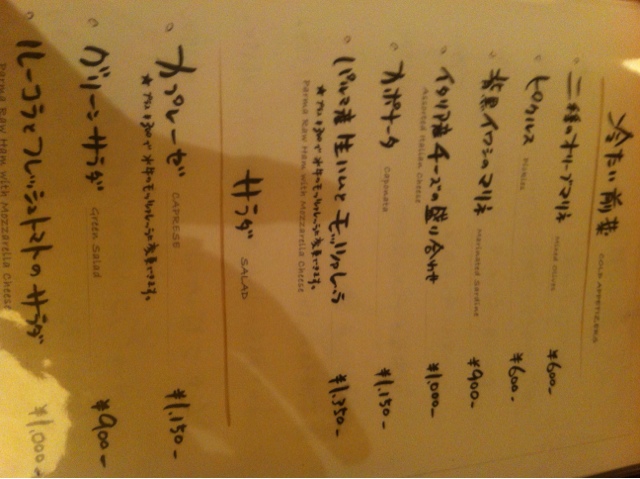 冷たい前菜 COLD APPETIZERS
二種のオリーブマリネ Mixed Olives ¥600-
ピクルス Pickles ¥600-
背黒イワシのマリネ Marinated Sardine ¥900-
イタリア産チーズの盛り合わせ ¥1,000-
Assorted Italian Cheese
カポナータ Caponata ¥1,150-
パルマ産生ハムとモッツァレラ ¥1,350-
★プラス¥300で水牛のモッツァレラに変更できます。
Parma Raw Ham with Mozzarella Cheese
サラダ SALAD
カプレーゼ CAPRESE ¥1,150-
★プラス¥300で水牛のモッツァレラに変更できます。
グリーンサラダ Green Salad ¥900-
ルーコラとフレッシュトマトのサラダ ¥1,000-
Parma Raw Ham with Mozzarella Cheese